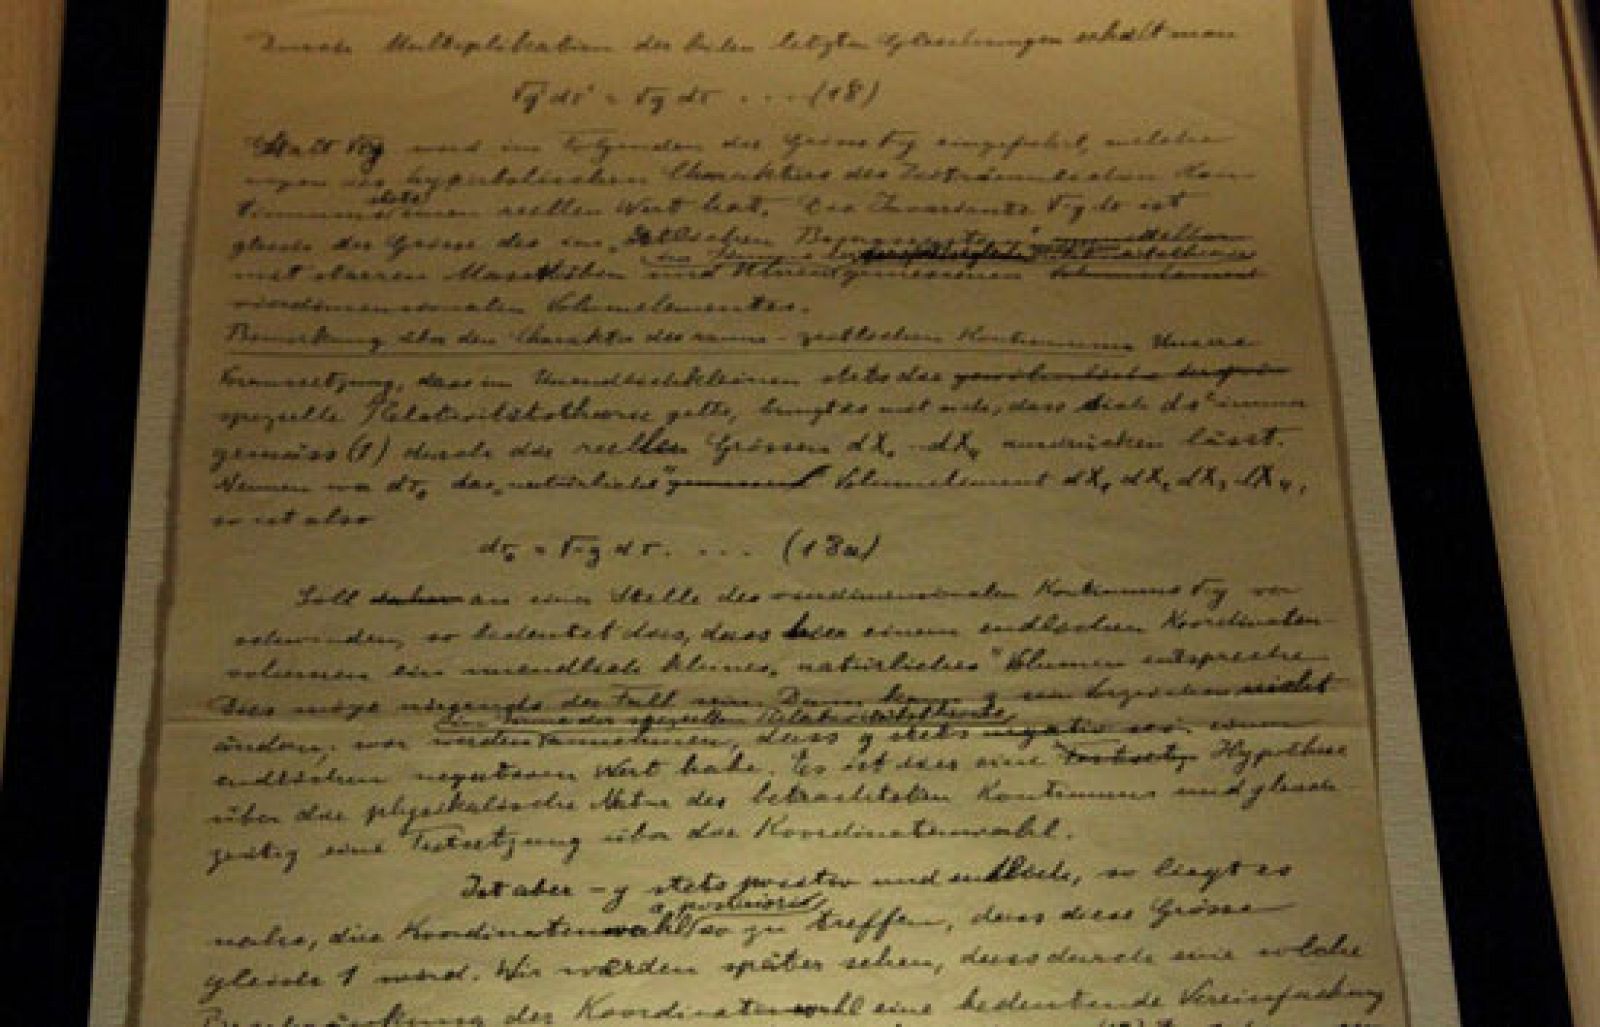 Durch Multiplikation der beiden letzten Gleichungen erhält man
√g' dτ' = √g dτ . . . . (18)
Statt √g wird im Folgenden die Grösse √-g eingeführt, welche
wegen des hyperbolischen Charakters des zeiträumlichen Kon-
tinuums stets einen reellen Wert hat. Die Invariante √-g dτ ist
gleich der Grösse des im "örtlichen Bezugssystem"
mit starren Massstäben und Uhren gemessenen
vierdimensionalen Volumelementes.
Bemerkung über den Charakter des raum-zeitlichen Kontinuums Unsere
Voraussetzung, dass im Unendlichkleinen stets die
spezielle Relativitätstheorie gelte, bringt es mit sich, dass sich ds² immer
gemäss (1) durch die reellen Grössen dX₁ .. dX₄ ausdrücken lässt.
Nennen wir dτ₀ das "natürliche" Volumelement dX₁ dX₂ dX₃ dX₄,
so ist also
dτ₀ = √-g dτ . . . . (18a)
Soll an einer Stelle des vierdimensionalen Kontinuums √-g ver-
schwinden, so bedeutet dies, dass hier einem endlichen Koordinaten-
volumen ein unendlich kleines "natürliches" Volumen entspreche.
Dies möge nirgends der Fall sein. Dann kann g sein Vorzeichen nicht
im Sinne der speziellen Relativitätstheorie
ändern; wir werden annehmen, dass g stets einen
endlichen negativen Wert habe. Es ist dies eine Hypothese
über die physikalische Natur des betrachteten Kontinuums und gleich-
zeitig eine Festsetzung über die Koordinatenwahl.
Ist aber -g stets positiv und endlich, so liegt es
a posteriori
nahe, die Koordinatenwahl so zu treffen, dass diese Grösse
gleich 1 wird. Wir werden später sehen, dass durch eine solche
Beschränkung der Koordinatenwahl eine bedeutende Vereinfachung